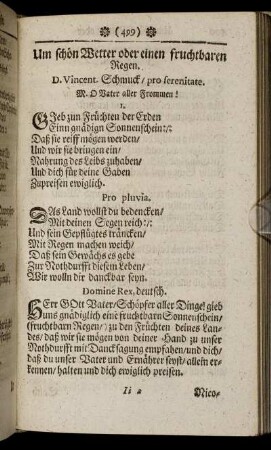 (499)
Um schön Wetter oder einen fruchtbaren
Regen.
D. Vincent. Schmuck/ pro serenitate.
M. O Vater aller Frommen!
1.
GIeb zun Früchten der Erden
Einn gnädign Sonnenschein:/:
Daß sie reiff mögen werden/
Und wir sie bringen ein/
Nahrung des Leibs zuhaben/
Und dich für deine Gaben
Zupreisen ewiglich.
Pro pluvia.
DAs Land wollst du bedencken/
Mit deinen Segen reich:/:
Und sein Gepflügtes träncken/
Mit Regen machen weich/
Daß sein Gewächs es gebe
Zur Nothdurfft diesem Leben/
Wir wolln dir danckbar seyn.
Domine Rex. deutsch.
HErr GOtt Vater/ Schöpfer aller Dinge! gieb
uns gnädiglich eine fruchtbarn Sonnenschein/
(fruchtbarn Regen/) zu den Früchten deines Lan-
des/ daß wir sie mögen von deiner Hand zu unser
Nothdurfft mit Dancksagung empfahen/ und dich/
daß du unser Vater und Ernährer seyst/ allein er-
kennen/ halten und dich ewiglich preisen.
Ii 2
Nico-